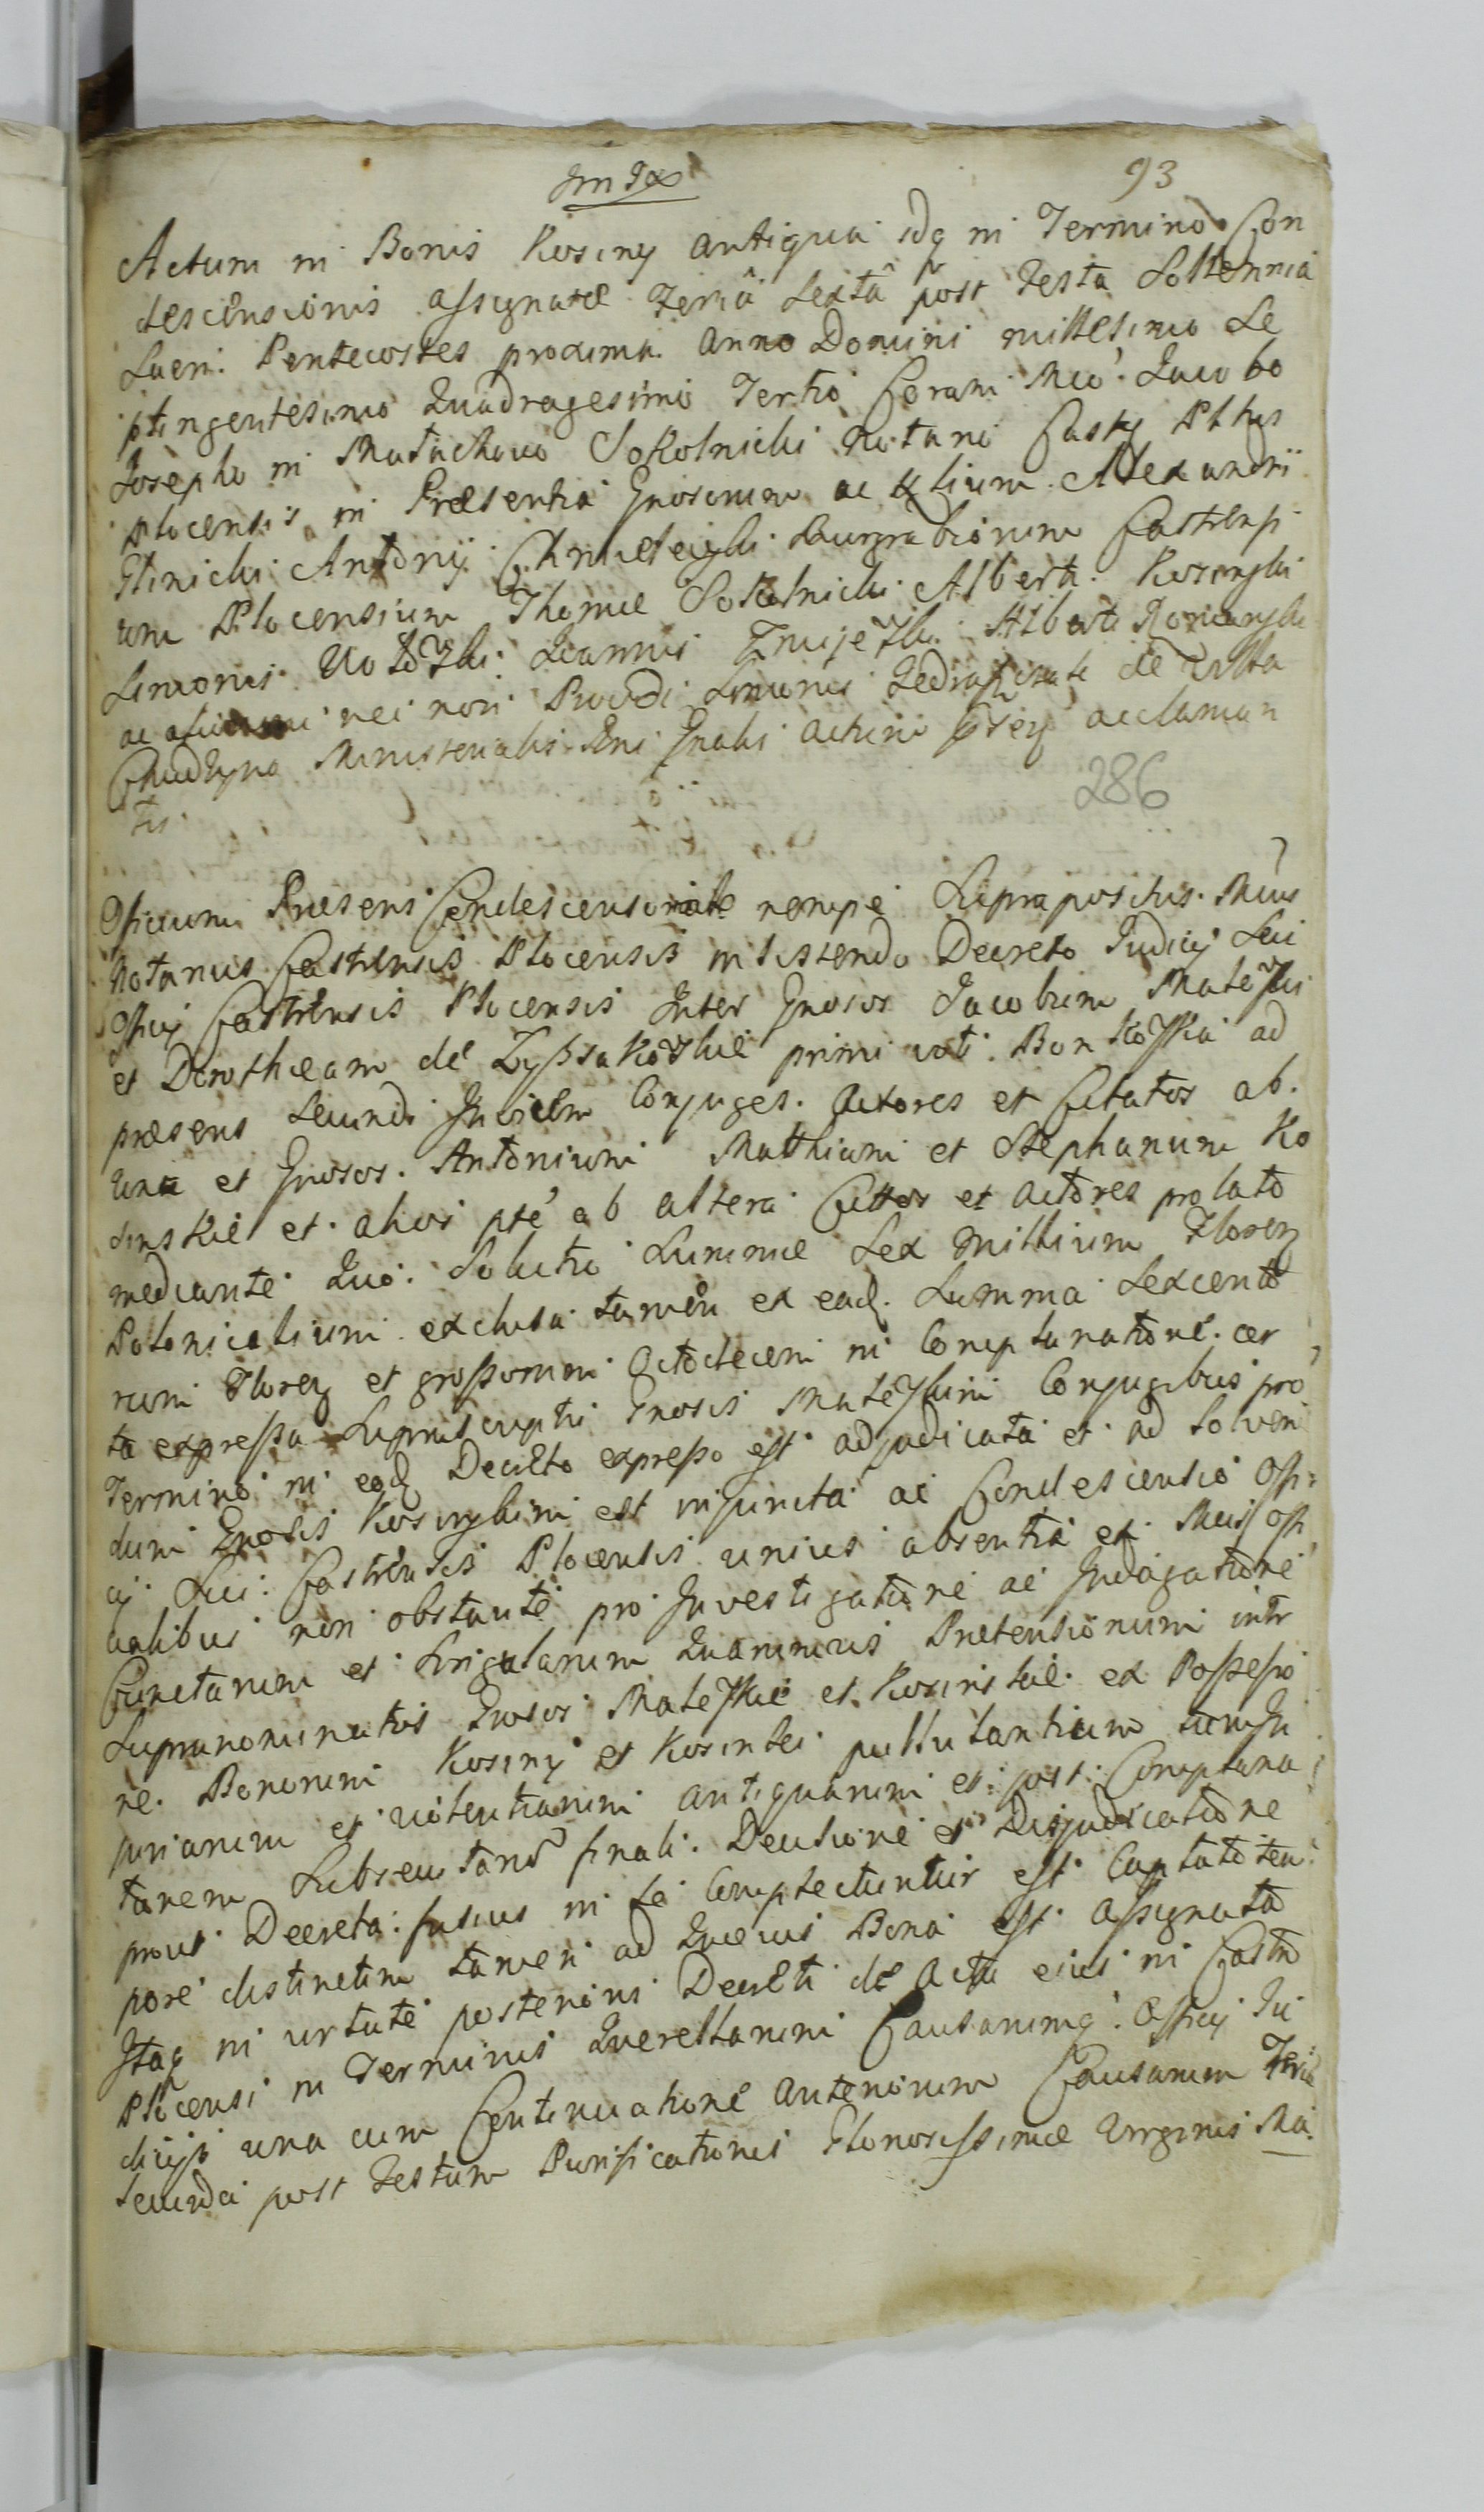 93
Actum in Bonis Kosiny antiqua idq in Termino Con
descensionis assignatæ Feriâ Sextâ post Festa Sollennia
Sacri Pentecostes proxima Anno Domini millesimo Se
ptingentesimo Quadragesimo Tertio Coram Mco Jacobo
Josepho in Matachowo Sokolnicki Notario Castr Pltus
Plocensis in Præsentia Gnosorum ac Nblium Alexandri
Glinicki Antonij Burgrabiorum Castrensi
um Plocensium Thomæ Sokolnicki Alberti Kosinski
Simonis Joannis Alberti
ac nec non Providi Simonis de Villa
Ministerialis Rni Gnalis actum psens acclaman
tis
286
Officium Præsens Condescensoriale nempe Supra positus Mcus
Notarius Castrensis Plocensis insistendo Decreto Judicij Sui
Officij Castrensis Plocensis Inter Gnosos Jacobum Mateski
et Dorotheam de primi voti Bonkoska ad
præsens Secundi Invicem Conjuges Actores et Citatos ab
una et Gnosos Antonium Matthiam et Stephanum Ko
sinskie et alios pte ab altera Cittos et Actores prolato
mediante Quo Solutio Summæ Sex Millium Floreq
Polonicalium exclusa tamen ex eadq Summa Sexcento
rum Floreq et grossorum Octodecem in Complanatione cer
ta expressa Suprascriptis Gnosis Mateskim Conjugibus pro
Termino in eodq Decreto expresso est adjudicata et ad solven
dum Gnosis Kosinskim est injuncta ac Condescensio Offi
cij Sui Castrensis Plocensis unius absentia et Maij Offi
cialibus non obstante pro Investigatione ac Indagatione
Cunctarum et Singularum Quarumvis Prætensionum intr
Supranominatos Gnosos Mateskie et Kosinskie ex Possessio
ne Bonorum Kosiny et Kosinki pullulantium tum In
juriarum et violentiarum antiquarum et post Complana
tionem Subsecutarum finali Decisione et Disjudicatione
prout Decreta fusius in se Complectuntur est Captato tem
pore distinctim tamen ad Quævis Bona est assignata
Itaq in virtute posterioris Decreti de Actu eius in Castro
Plocensi in Terminis Querellarum Causarumq Officij Ju
dicijq una cum Continuatione anteriorum Causarum Feria
Secunda post Festum Purificationis Glonosissimæ Virginis Ma